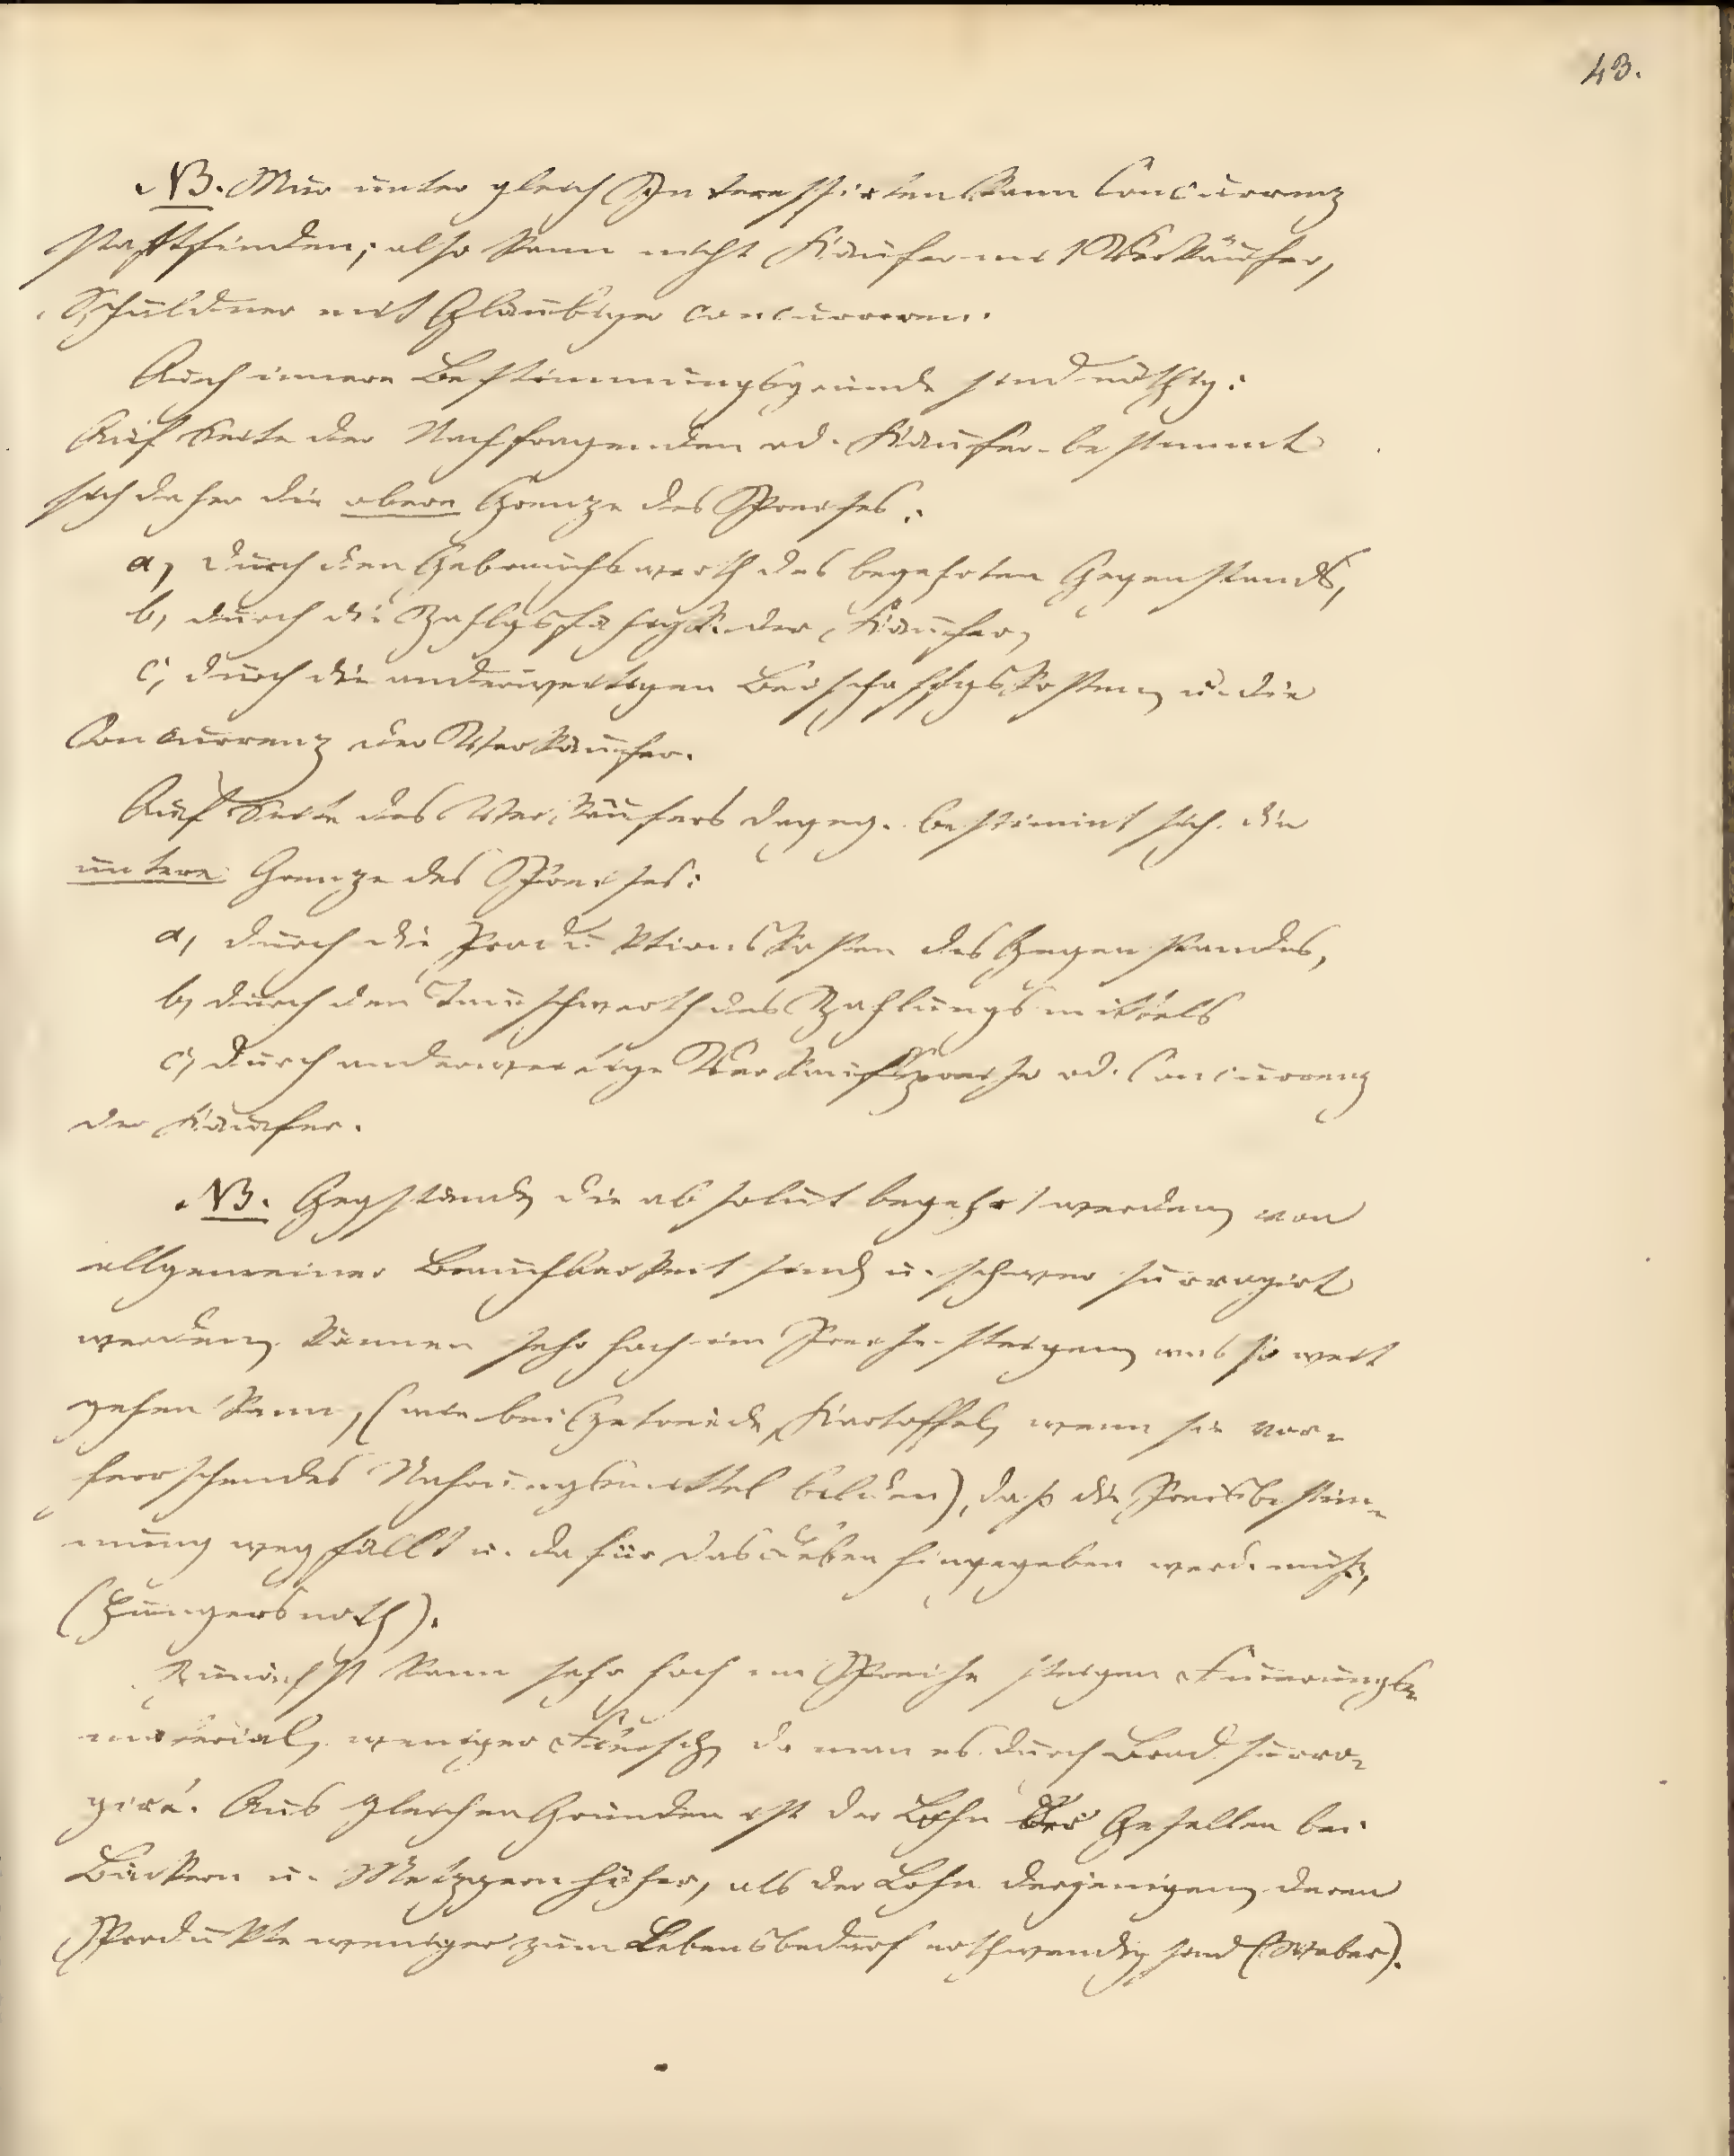 43.
NB. Nur unter gleich Interessirten kann Concurrenz
stattfinden; also kann nicht Käufer mit Verkäufer,
Schuldner mit Gläubiger concurriren.
Auch innere Bestimmungsgründe sind nöthig:
Auf Seite der Nachfragenden od. Käufer bestimmt
sich daher die obere Grenze des Preises:
a, durch den Gebrauchswerth des begehrten Gegenstands,
b, durch die Zahlgsfähigk. der Käufer,
c, durch die anderweitigen Beischaffgskosten, u. die
Concurrenz der Verkäufer.
Auf Seite des Verkäufers dageg. bestimmt sich die
untere Grenze des Preises:
a, durch die Produktionskosten des Gegenstandes,
b, durch den Tauschwerth des Zahlungsmittels
c, durch anderweitige Verkaufspreise od. Concurrenz
der Käufer.
NB. Gegstände, die absolut begehrt werden, von
allgemeiner Brauchbarkeit sind, u. schwer surrogirt
werden, können sehr hoch im Preise steigen, was so weit
gehen kann, (wie bei Getreide, Kartoffel, wenn sie vor-
herrschendes Nahrungsmittel bilden), daß die Preisbestim-
mung wegfällt u. dafür das Leben hingegeben werd. muß,
(Hungersnoth).
Zunächst kann sehr hoch im Preise steigen Feuerungs-
material, weniger Fleisch, da man es durch Brod surro-
girt. Aus gleichen Gründen ist der Lohn der Gesellen bei
Bäckern u. Metzgern höher, als der Lohn derjenigen, deren
Produkte weniger zum Lebensbedarf nothwendig sind (Weber).